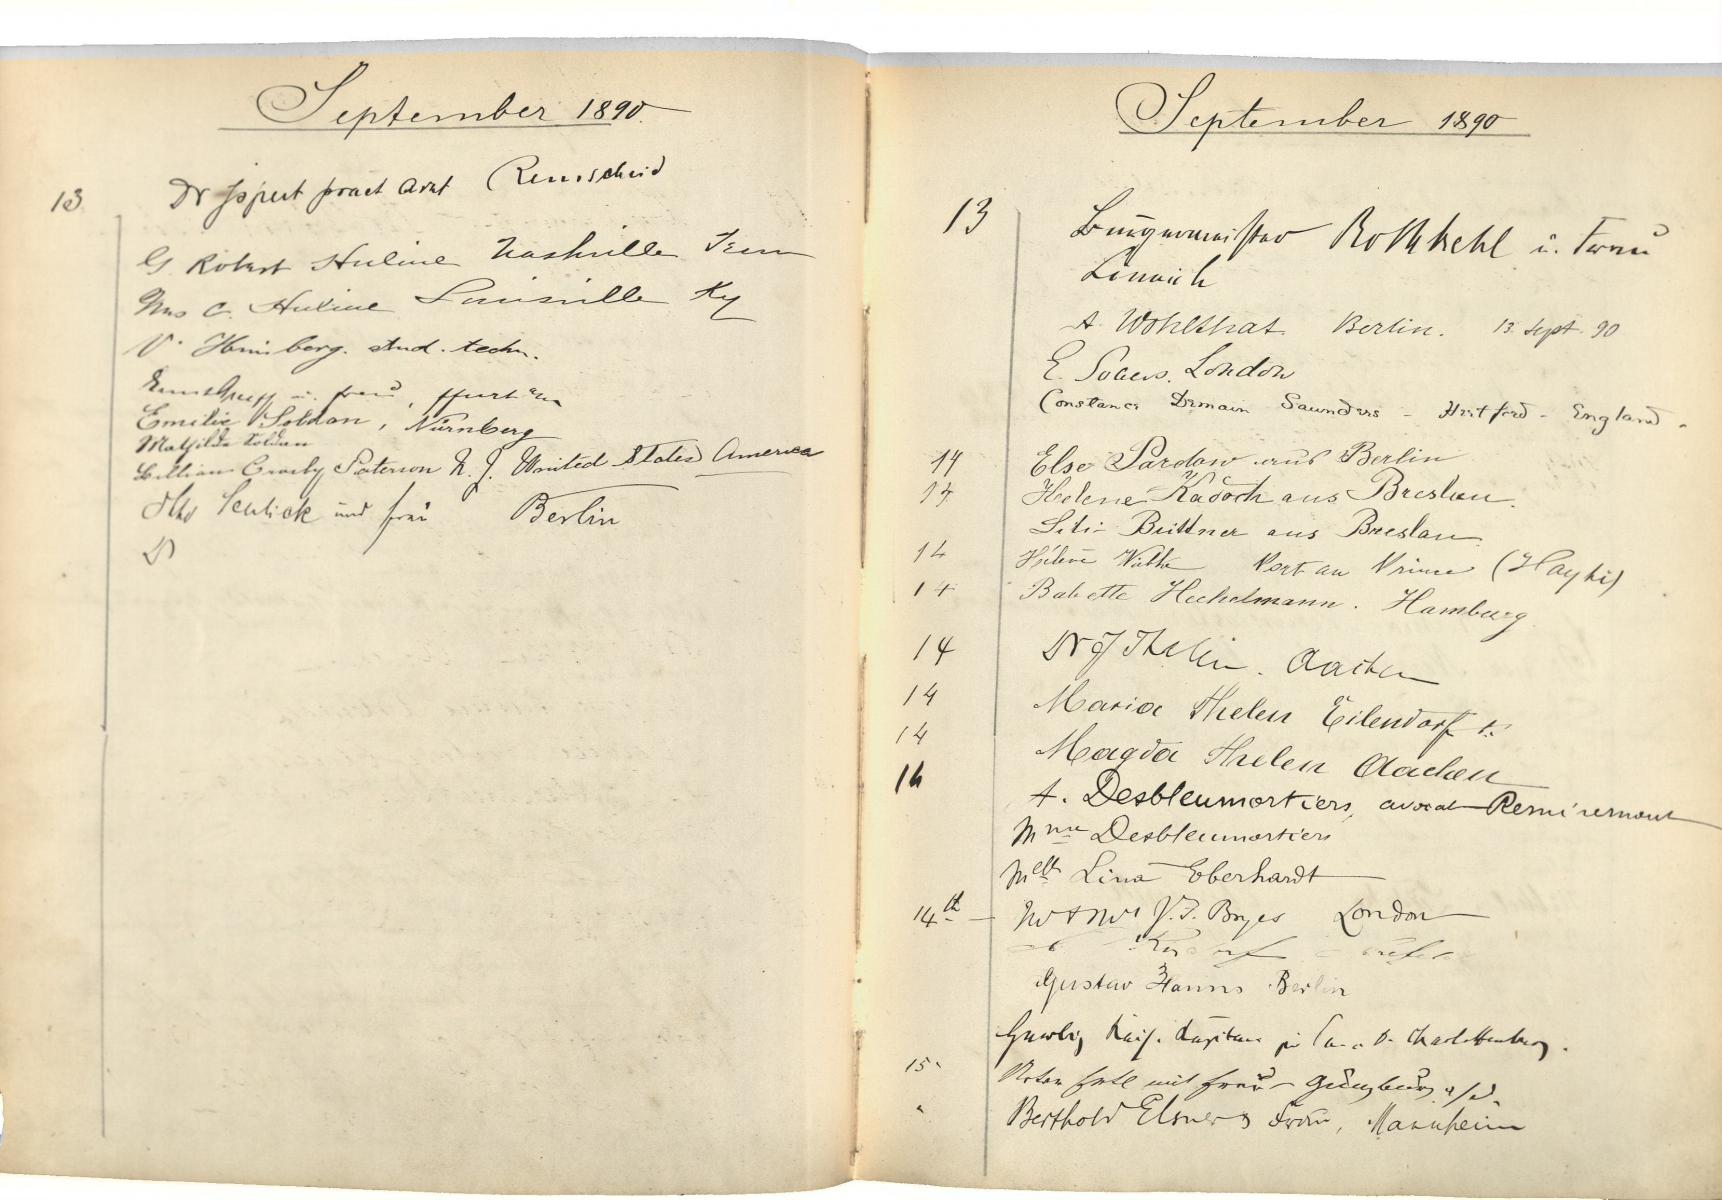 September 1890.
13
Dr pract Arzt Remscheid
G Robert Huline Nashville Tenn
Mrs C. Huline Louisville Ky
V. Heinsberg. stud. techn.
u. Frau,
Emilie Soldan, Nürnberg
Mathilde Soldan
Lillian Crosby Paterson N. J. United States America
und Frau Berlin
Dr
September 1890
13
Bürgermeister Rothkehl u. Frau
Linnich
A. Wohlthat Berlin. 13 Sept. 90
E. London
Constance Demain Saunders - Hertford - England.
14 Else Pardow aus Berlin
14 Helene Kadoch aus Breslau.
Büttner aus Breslau
14 Hélène Port au Prince (Hayti)
14 Babette Hechelmann. Hamburg
14 Dr J Thelen. Aachen
14 Maria Thelen Eilendorf
14 Magda Thelen Aachen
14 A. Desbleumortiers, avocat Remiremont
Mme Desbleumortiers
Melle Lina Eberhardt
14th - Mr & Mrs J. F. Boyes London
Gustav Hanns Berlin
Kais. Charlottenburg.
15. mit Frau Günzburg a/d.
" Berthold Elsner & Frau, Mannheim